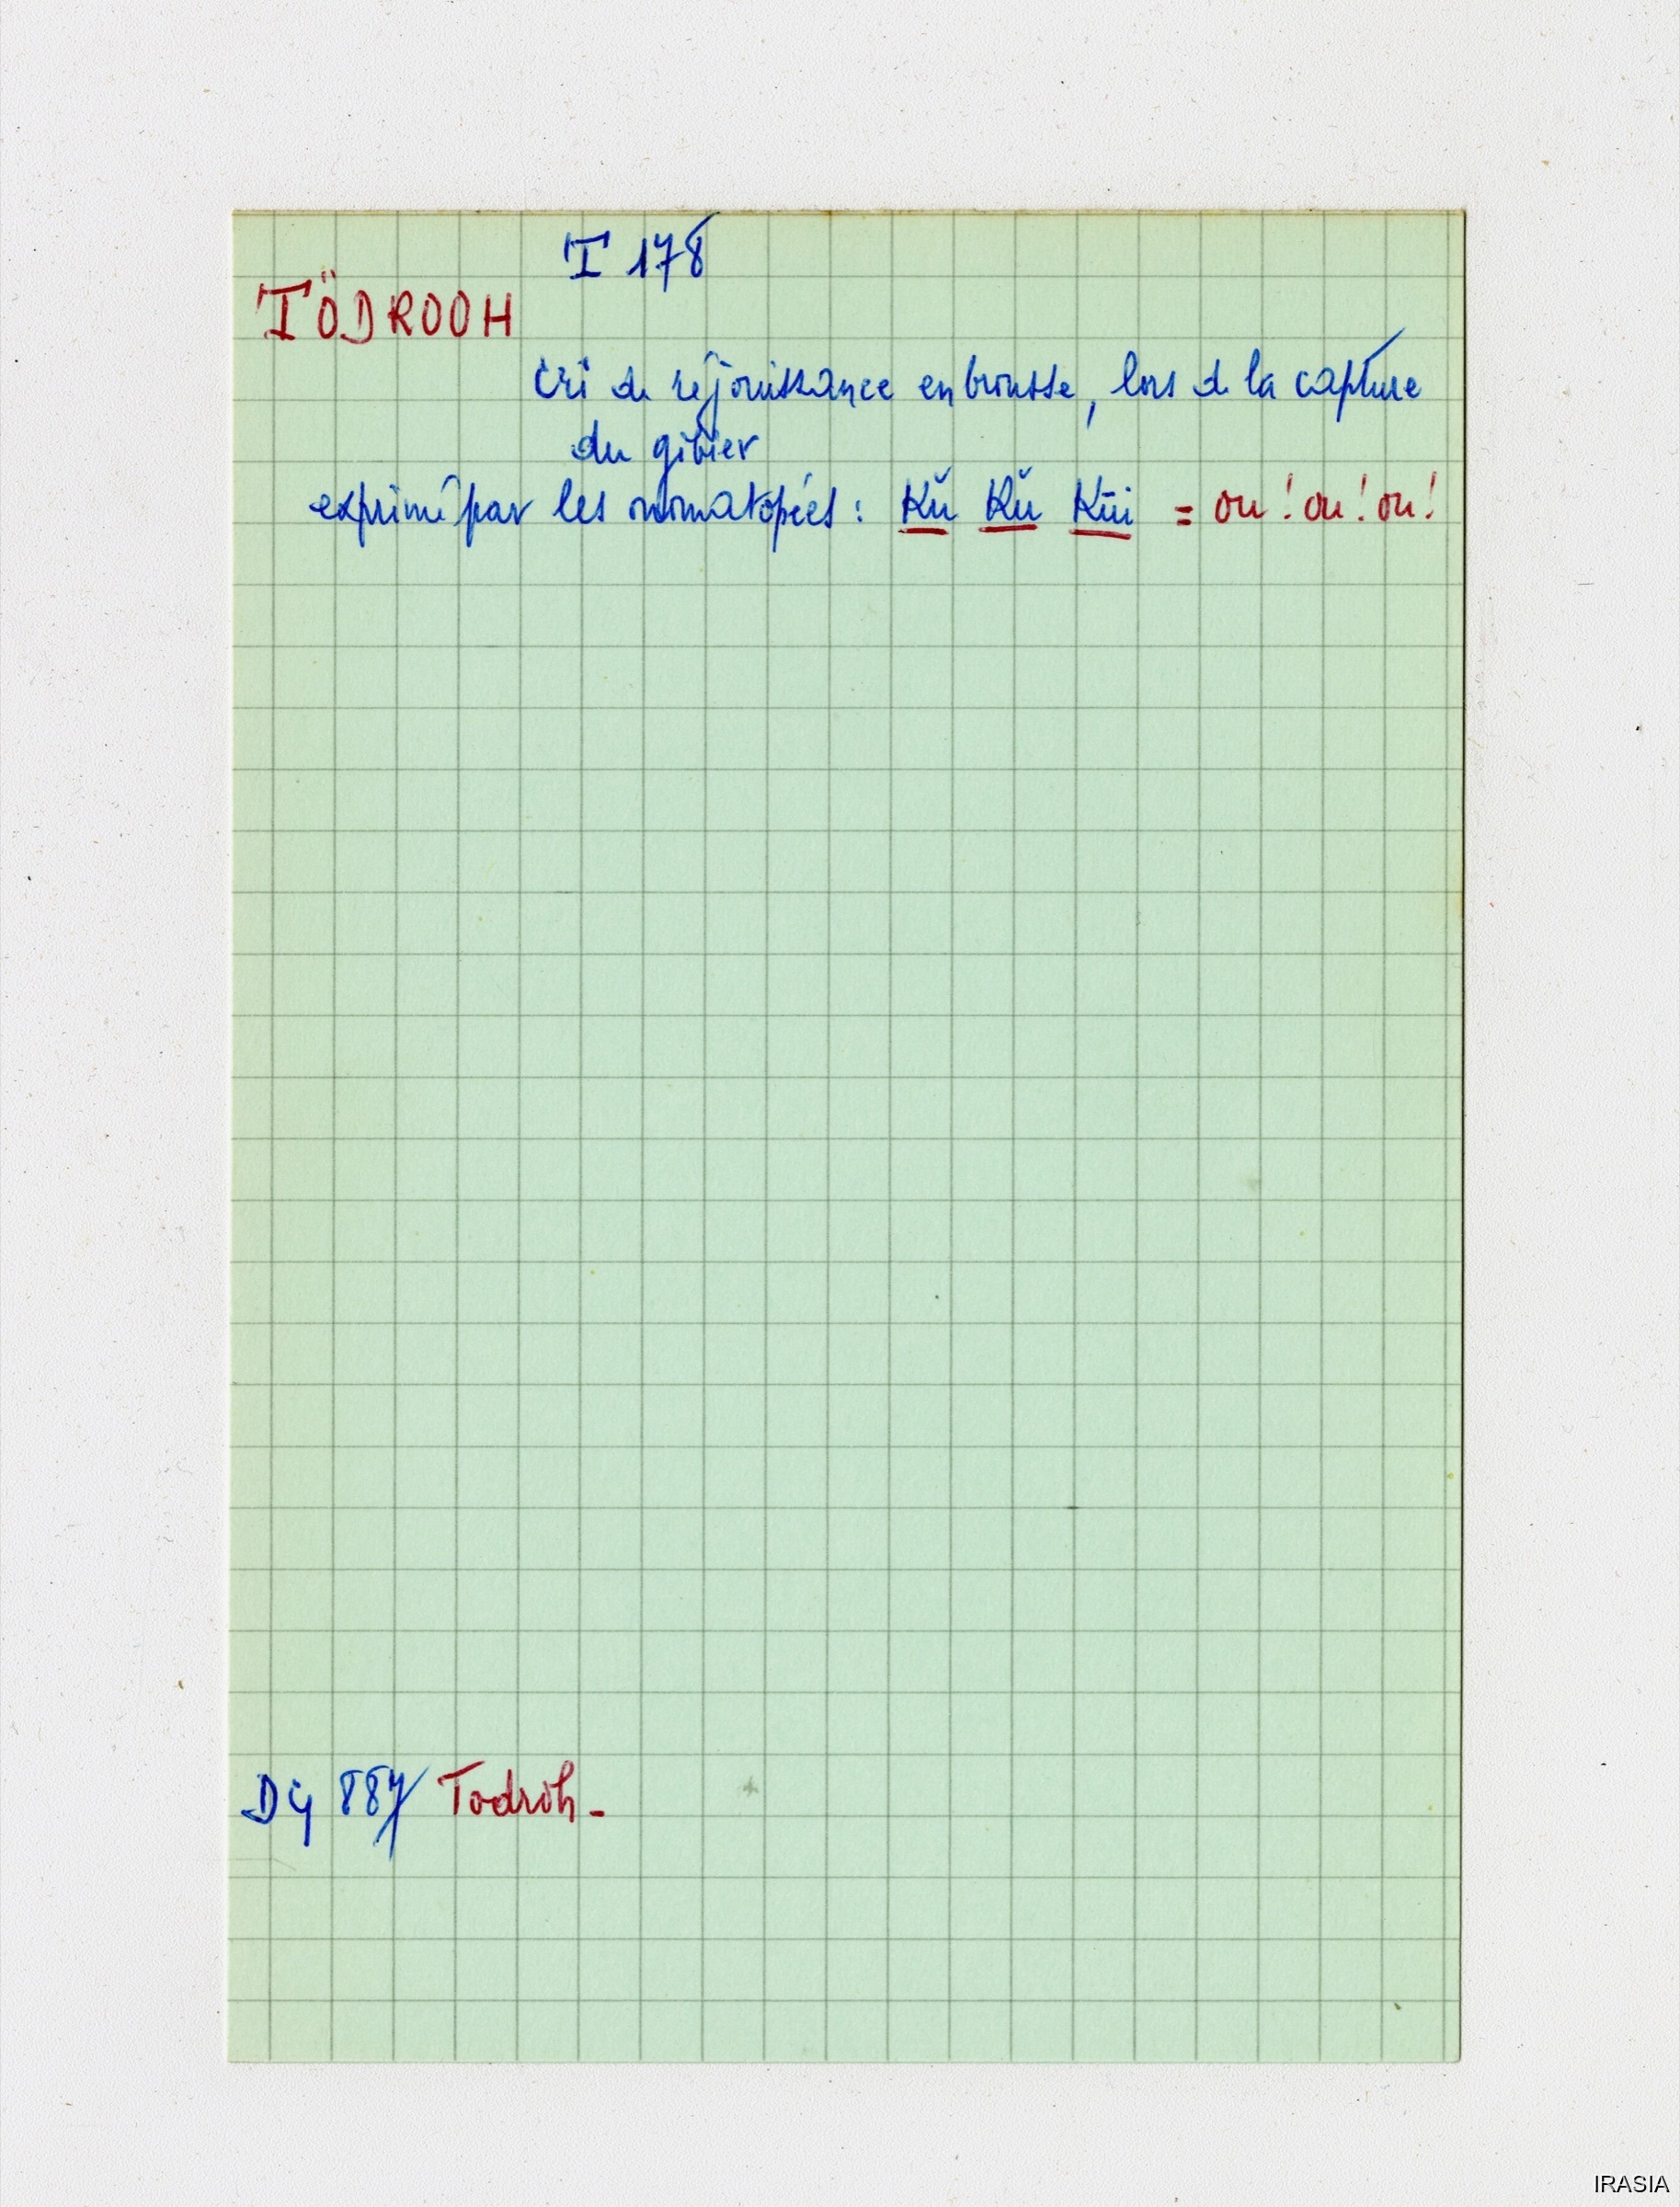 T 178
TÖDROOH
Cri de réjouissance en brousse, lors de la capture
du gibier
exprimé par les onomatopées : Kŭ Kŭ Kūi = ou ! ou ! ou !
Dij 887 Todröh -
IRASIA